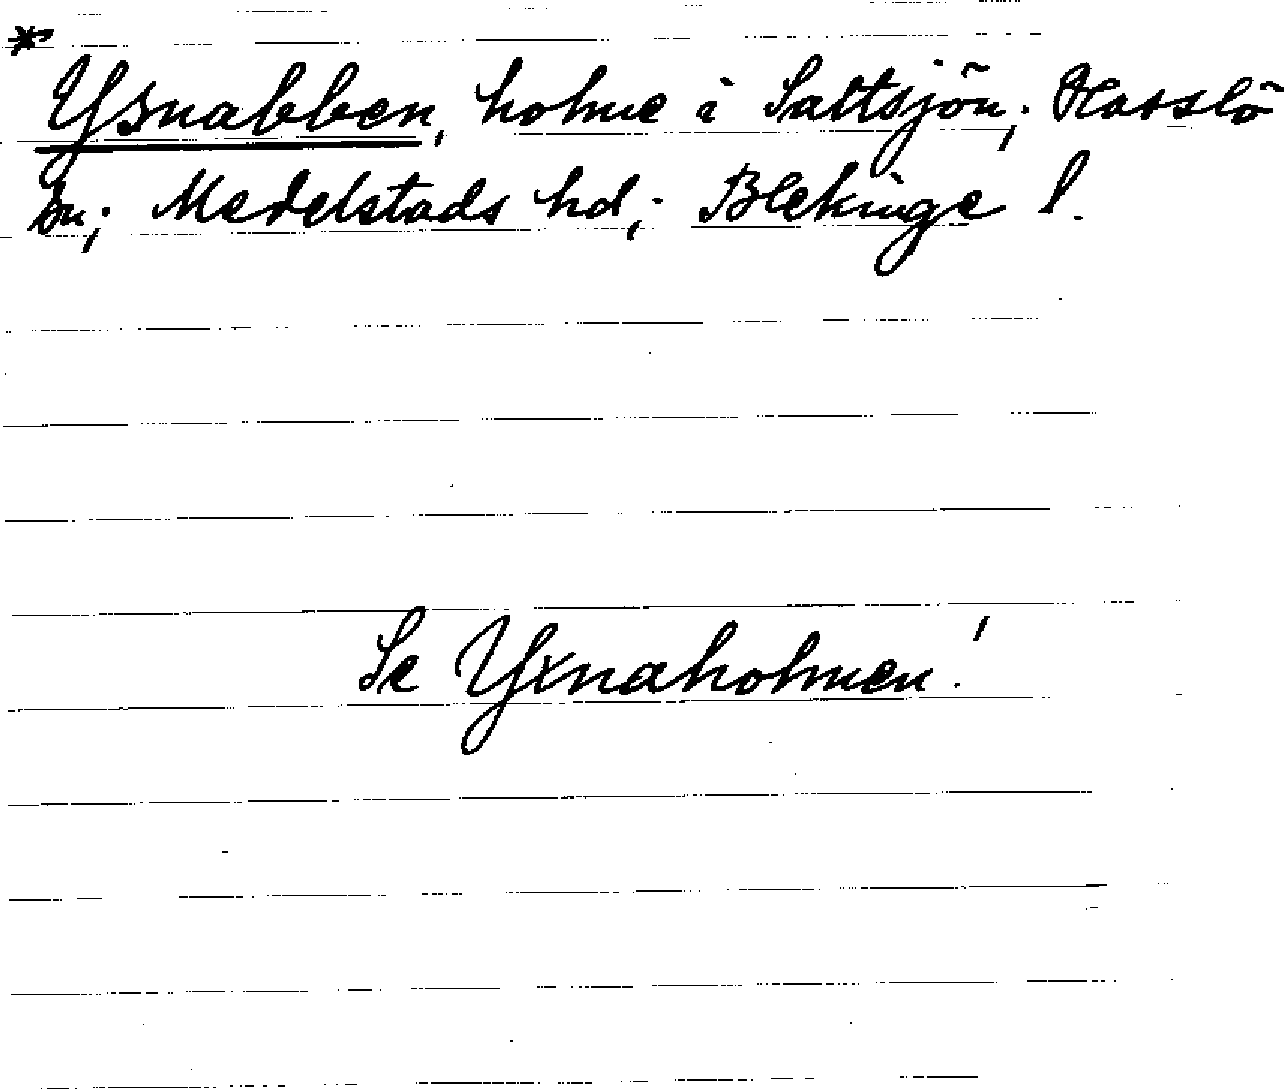 * Ysnabben, holme i Saltsjön; Hasslö
sn; Medelstads hd; Blekinge l.
Se Yxnaholmen!